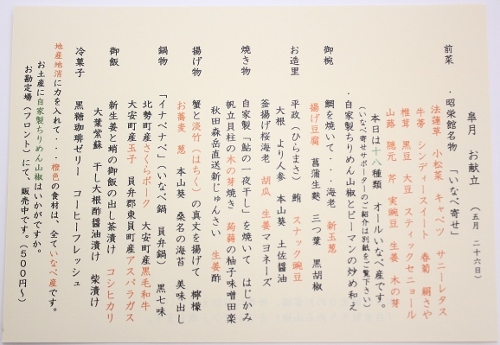 皐月　お献立　（五月　二十六日）
前菜　・昭栄館名物　「いなべ寄せ」
法蓮草　小松菜　キャベツ　サニーレタス
牛蒡　シンディースイート　春菊　絹さや
椎茸　黒豆　大豆　スティックセニョール
山蕗　隠元　芹　実豌豆　生姜　木の芽
本日は十八種類　オールいなべ産です。
（いなべ寄せサポーターのご紹介は別紙をご覧下さい）
・自家製ちりめん山椒とピーマンの炒め和え
御椀　鯛を焼いて・・・海老　新玉葱
揚げ豆腐　菖蒲生麩　三つ葉　黒胡椒
お造里　平政（ひらまさ）　鮪　スナック豌豆
大根　より人参　本山葵　土佐醤油
釜揚げ桜海老　胡瓜　生姜マヨネーズ
焼き物　自家製「鮎の一夜干し」を焼いて　はじかみ
帆立貝柱の木の芽焼き　蒟蒻の柚子味噌田楽
秋田森岳直送新じゅんさい　生姜酢
揚げ物　蟹と淡竹（はちく）の真丈を揚げて　檸檬
お蕎麦　葱　本山葵　桑名の海苔　美味出し
鍋物　「イナベナベ」（いなべ鍋　員弁鍋）　黒七味
北勢町産さくらポーク　大安町産黒毛和牛
大安町産玉子　員弁郡東員町産アスパラガス
御飯　新生姜と蛸の御飯の出し茶漬け　コシヒカリ
大葉紫蘇　干し大根酢醤油漬け　柴漬け
冷菓子　黒糖珈琲ゼリー　コーヒーフレッシュ
地産地消に力を入れて・・・橙色の食材は、全ていなべ産です。
お土産に自家製ちりめん山椒はいかがですか。
お勘定場（フロント）にて、販売中です。（５００円～）